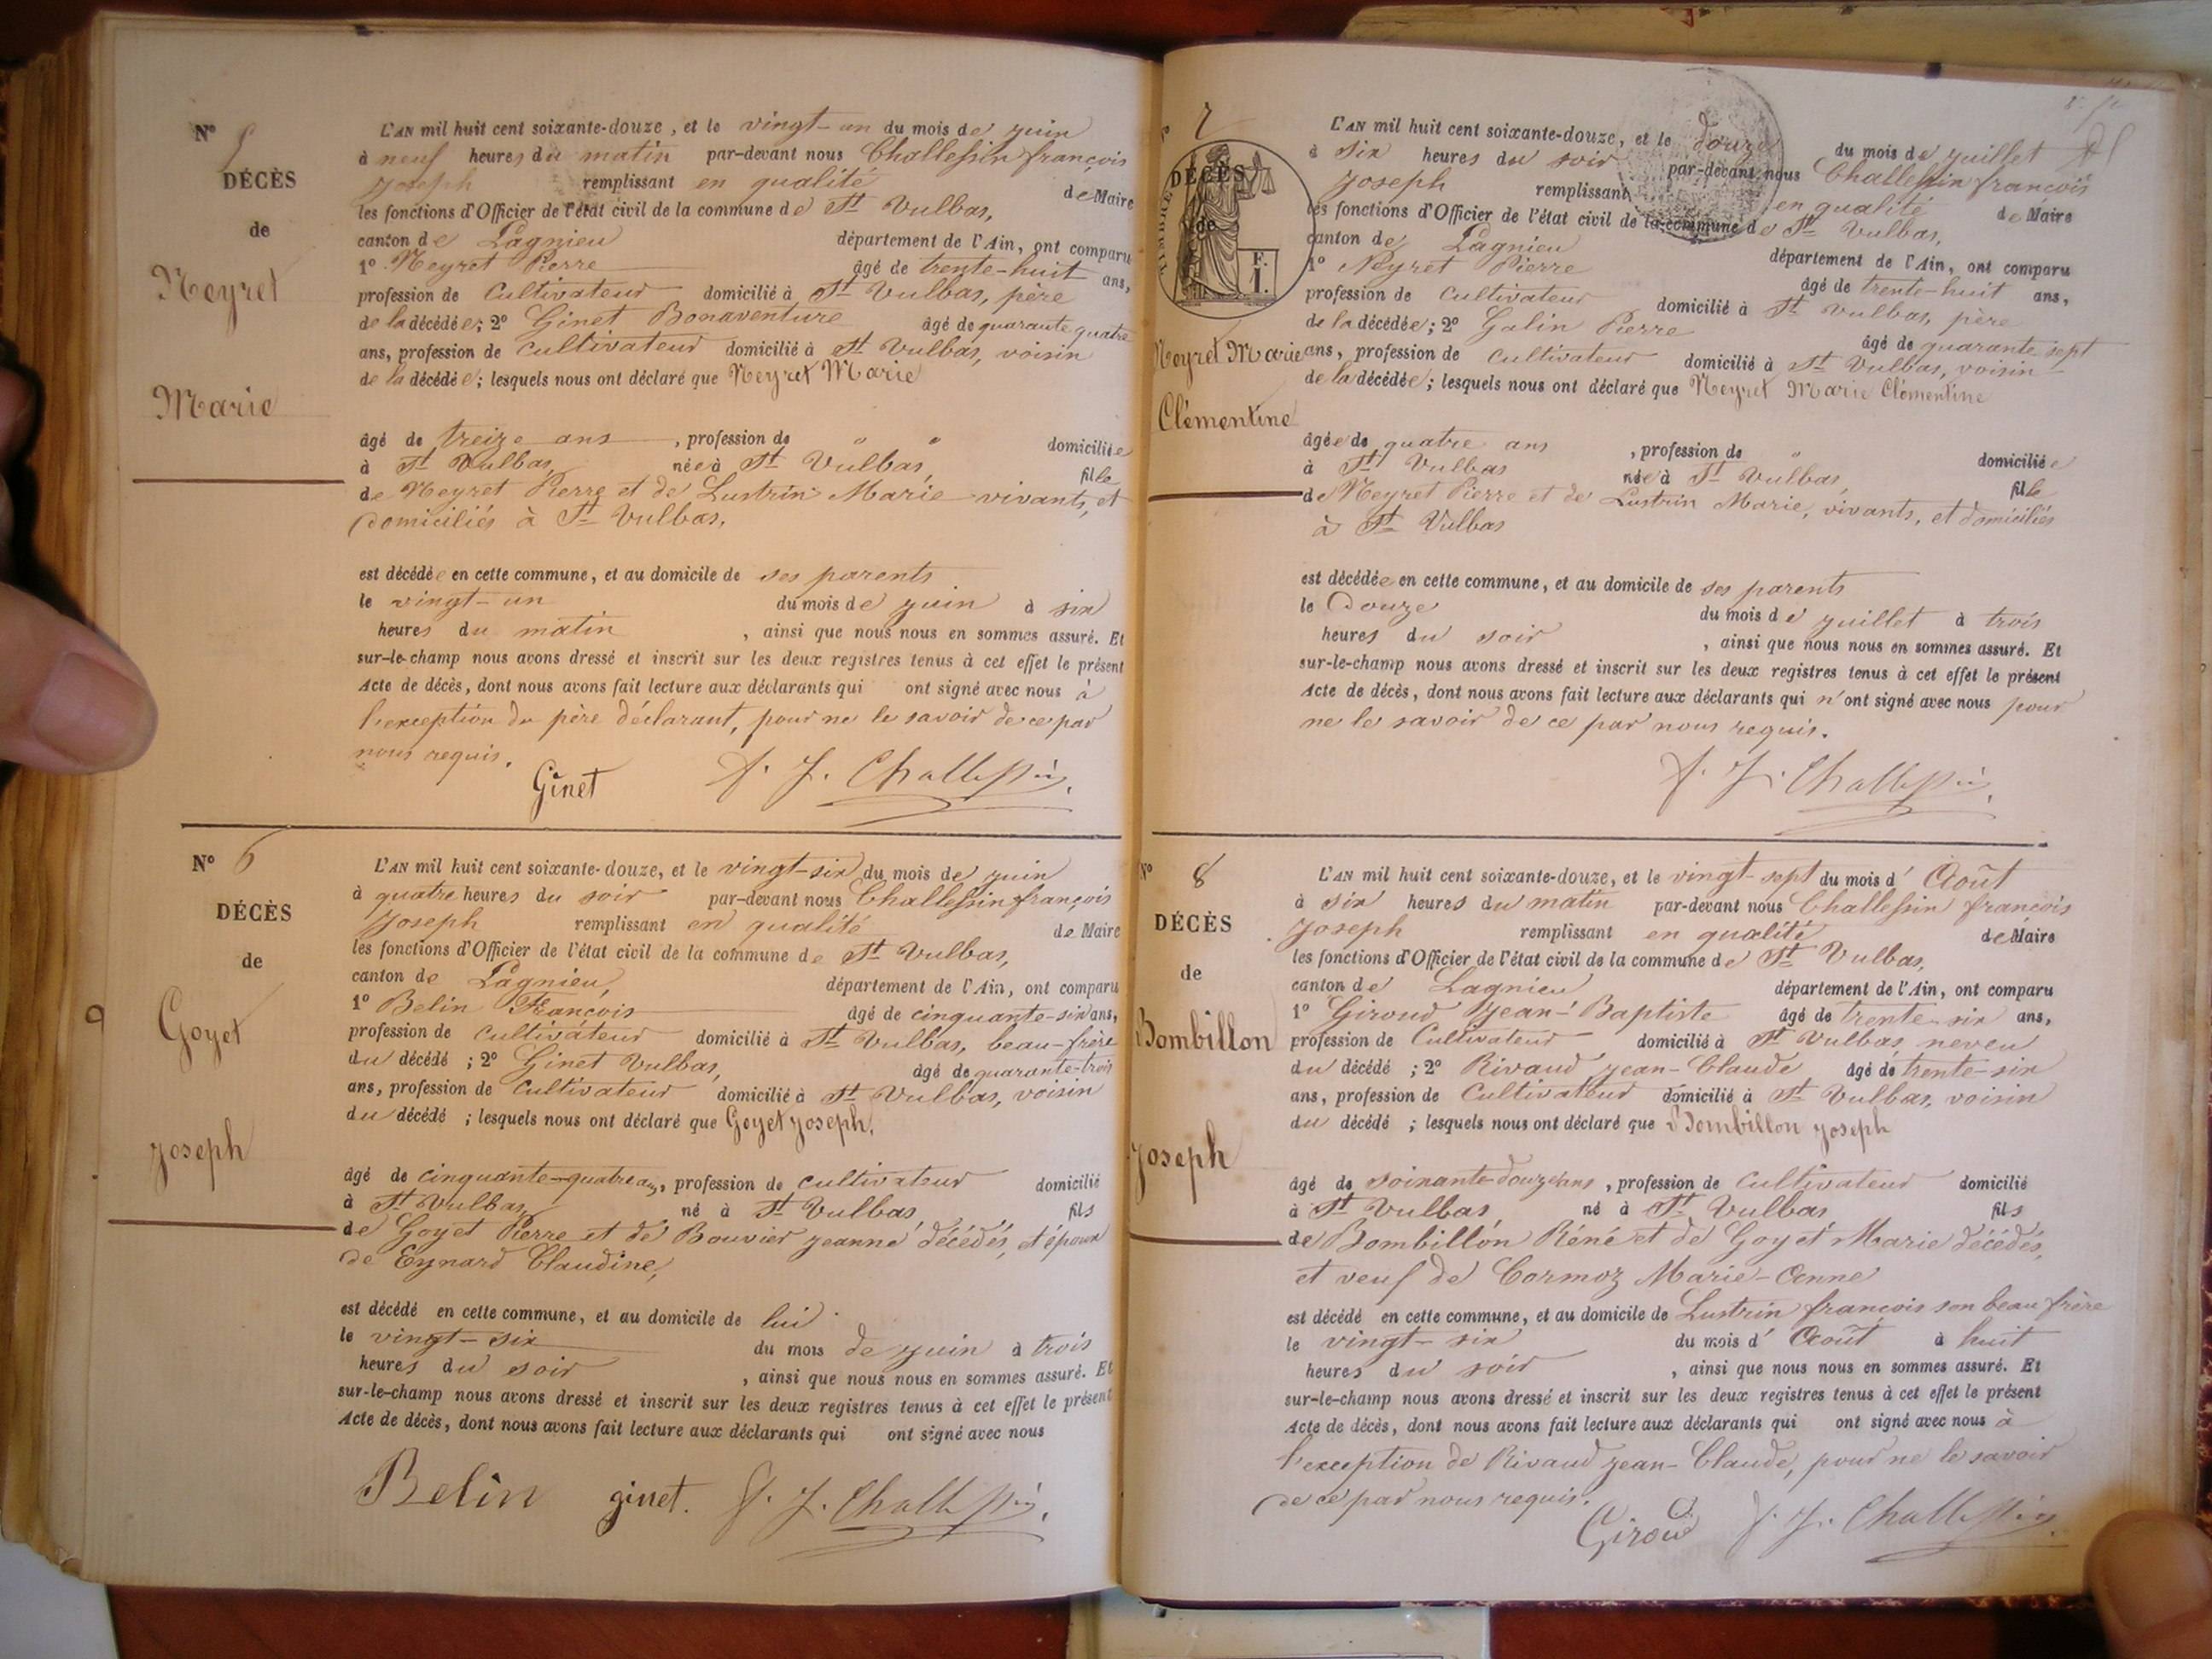 N° 5
DÉCÈS
de
Neyret
Marie
L'AN mil huit cent soixante-douze, et le vingt-un du mois de juin
à neuf heures du matin par-devant nous Challessin françois
Joseph remplissant en qualité de Maire
les fonctions d'Officier de l'état civil de la commune de St Vulbas,
canton de Lagnieu département de l'Ain, ont comparu
1° Neyret Pierre âgé de trente-huit ans,
profession de Cultivateur domicilié à St Vulbas, père
de la décédée; 2° Ginet Bonaventure âgé de quarante quatre
ans, profession de cultivateur domicilié à St Vulbas, voisin
de la décédée; lesquels nous ont déclaré que Neyret Marie
âgé de treize ans, profession de " " domiciliée
à St Vulbas, née à St Vulbas, fille
de Neyret Pierre et de Lustrin Marie vivants, et
domiciliés à St Vulbas,
est décédée en cette commune, et au domicile de ses parents
le vingt-un du mois de juin à six
heures du matin, ainsi que nous nous en sommes assuré. Et
sur-le-champ nous avons dressé et inscrit sur les deux registres tenus à cet effet le présent
Acte de décès, dont nous avons fait lecture aux déclarants qui ont signé avec nous à
l'exception du père déclarant, pour ne le savoir de ce par
nous requis.
Ginet F. J. Challessin
N° 6
DÉCÈS
de
Goyet
Joseph
L'AN mil huit cent soixante-douze, et le vingt-six du mois de juin
à quatre heures du soir par-devant nous Challessin françois
Joseph remplissant en qualité de Maire
les fonctions d'Officier de l'état civil de la commune de St Vulbas,
canton de Lagnieu, département de l'Ain, ont comparu
1° Belin François âgé de cinquante-six ans,
profession de cultivateur domicilié à St Vulbas, beau-frère
du décédé ; 2° Ginet Vulbas, âgé de quarante-trois
ans, profession de Cultivateur domicilié à St Vulbas, voisin
du décédé ; lesquels nous ont déclaré que Goyet Joseph,
âgé de cinquante-quatre ans, profession de cultivateur domicilié
à St Vulbas, né à St Vulbas, fils
de Goyet Pierre et de Bouvier Jeanne décédés, et époux
de Eynard Claudine,
est décédé en cette commune, et au domicile de lui
le vingt-six du mois de juin à trois
heures du soir, ainsi que nous nous en sommes assuré. Et
sur-le-champ nous avons dressé et inscrit sur les deux registres tenus à cet effet le présent
Acte de décès, dont nous avons fait lecture aux déclarants qui ont signé avec nous
Belin ginet. F. J. Challessin
7
DÉCÈS
de
TIMBRE
F.
1.
Neyret Marie
Clémentine
L'AN mil huit cent soixante-douze, et le douze du mois de juillet
à six heures du soir par-devant nous Challessin françois
Joseph remplissant en qualité de Maire
les fonctions d'Officier de l'état civil de la commune de St Vulbas,
canton de Lagnieu département de l'Ain, ont comparu
1° Neyret Pierre âgé de trente-huit ans,
profession de cultivateur domicilié à St Vulbas, père
de la décédée; 2° Galin Pierre âgé de quarante sept
ans, profession de cultivateur domicilié à St Vulbas, voisin
de la décédée; lesquels nous ont déclaré que Neyret Marie Clémentine
âgée de quatre ans, profession de " domiciliée
à St Vulbas née à St Vulbas, fille
de Neyret Pierre et de Lustrin Marie, vivants, et domiciliés
à St Vulbas
est décédée en cette commune, et au domicile de ses parents
le Douze du mois de juillet à trois
heures du soir, ainsi que nous nous en sommes assuré. Et
sur-le-champ nous avons dressé et inscrit sur les deux registres tenus à cet effet le présent
Acte de décès, dont nous avons fait lecture aux déclarants qui n'ont signé avec nous pour
ne le savoir de ce par nous requis.
F. J. Challessin
N° 8
DÉCÈS
de
Bombillon
Joseph
L'AN mil huit cent soixante-douze, et le vingt-sept du mois d' Août
à six heures du matin par-devant nous Challessin françois
Joseph remplissant en qualité de Maire
les fonctions d'Officier de l'état civil de la commune de St Vulbas,
canton de Lagnieu département de l'Ain, ont comparu
1° Giroud Jean-Baptiste âgé de trente-six ans,
profession de Cultivateur domicilié à St Vulbas neveu
du décédé ; 2° Rivaud Jean-Claude âgé de trente-six
ans, profession de Cultivateur domicilié à St Vulbas, voisin
du décédé ; lesquels nous ont déclaré que Bombillon Joseph
âgé de soixante-douze ans, profession de Cultivateur domicilié
à St Vulbas, né à St Vulbas fils
de Bombillon Réné et de Goyet Marie décédés,
et veuf de Cormoz Marie-Anne
est décédé en cette commune, et au domicile de Lustrin françois son beau frère
le vingt-six du mois d' Août à huit
heures du soir, ainsi que nous nous en sommes assuré. Et
sur-le-champ nous avons dressé et inscrit sur les deux registres tenus à cet effet le présent
Acte de décès, dont nous avons fait lecture aux déclarants qui ont signé avec nous à
l'exception de Rivaud Jean-Claude, pour ne le savoir
de ce par nous requis.
Giroud F. J. Challessin